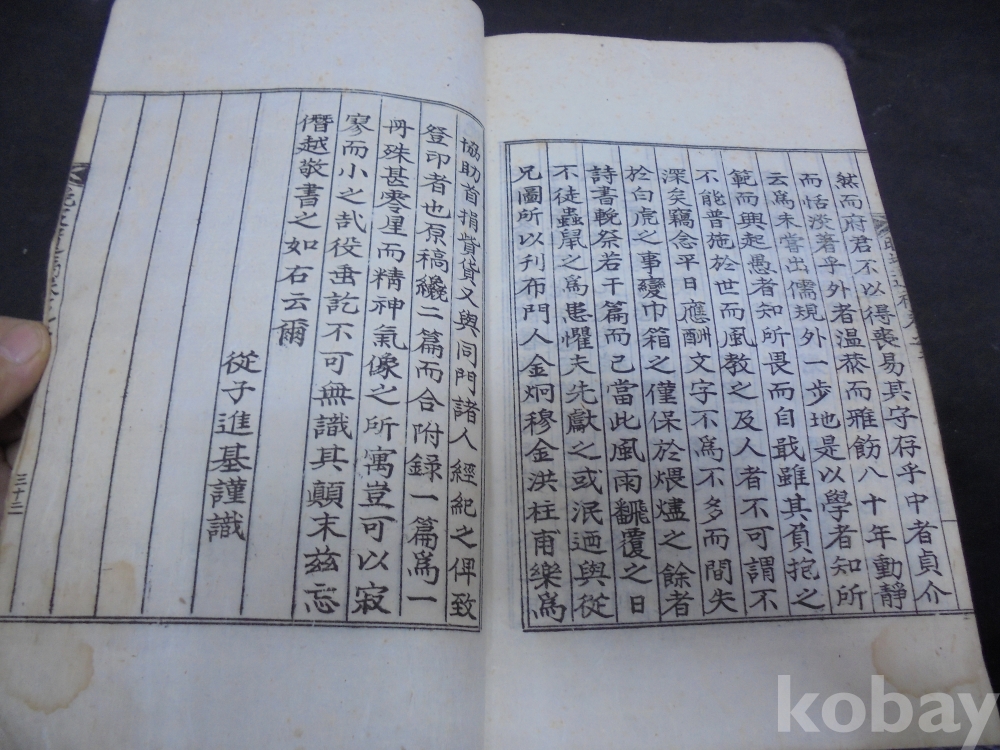 然而府君不以得喪易其守存乎中者貞介
而恬淡著乎外者温恭而雅飭八十年動靜
云爲未嘗出儒規外一步地是以學者知所
範而興起愚者知所畏而自戢雖其負抱之
不能普施於世而風敎之及人者不可謂不
深矣竊念平日應酬文字不爲不多而間失
於白虎之事變巾箱之僅保於煨燼之餘者
詩書輓祭若干篇而已當此風雨飜覆之日
不徒蟲鼠之爲患懼夫先獻之或泯迺與從
兄圖所以刊布門人金炯穆金洪柱甫樂爲
協助首捐貲貸又與同門諸人經紀之俾致
登印者也原稿纔二篇而合附錄一篇爲一
冊殊甚零星而精神氣像之所寓豈可以寂
寥而小之哉役垂訖不可無識其顛末玆忘
僭越敬書之如右云爾
從子進基謹識
三十三
kobay